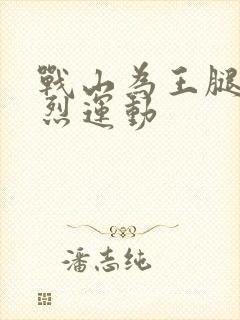 戰山為王腿
烈運動
潘志纯